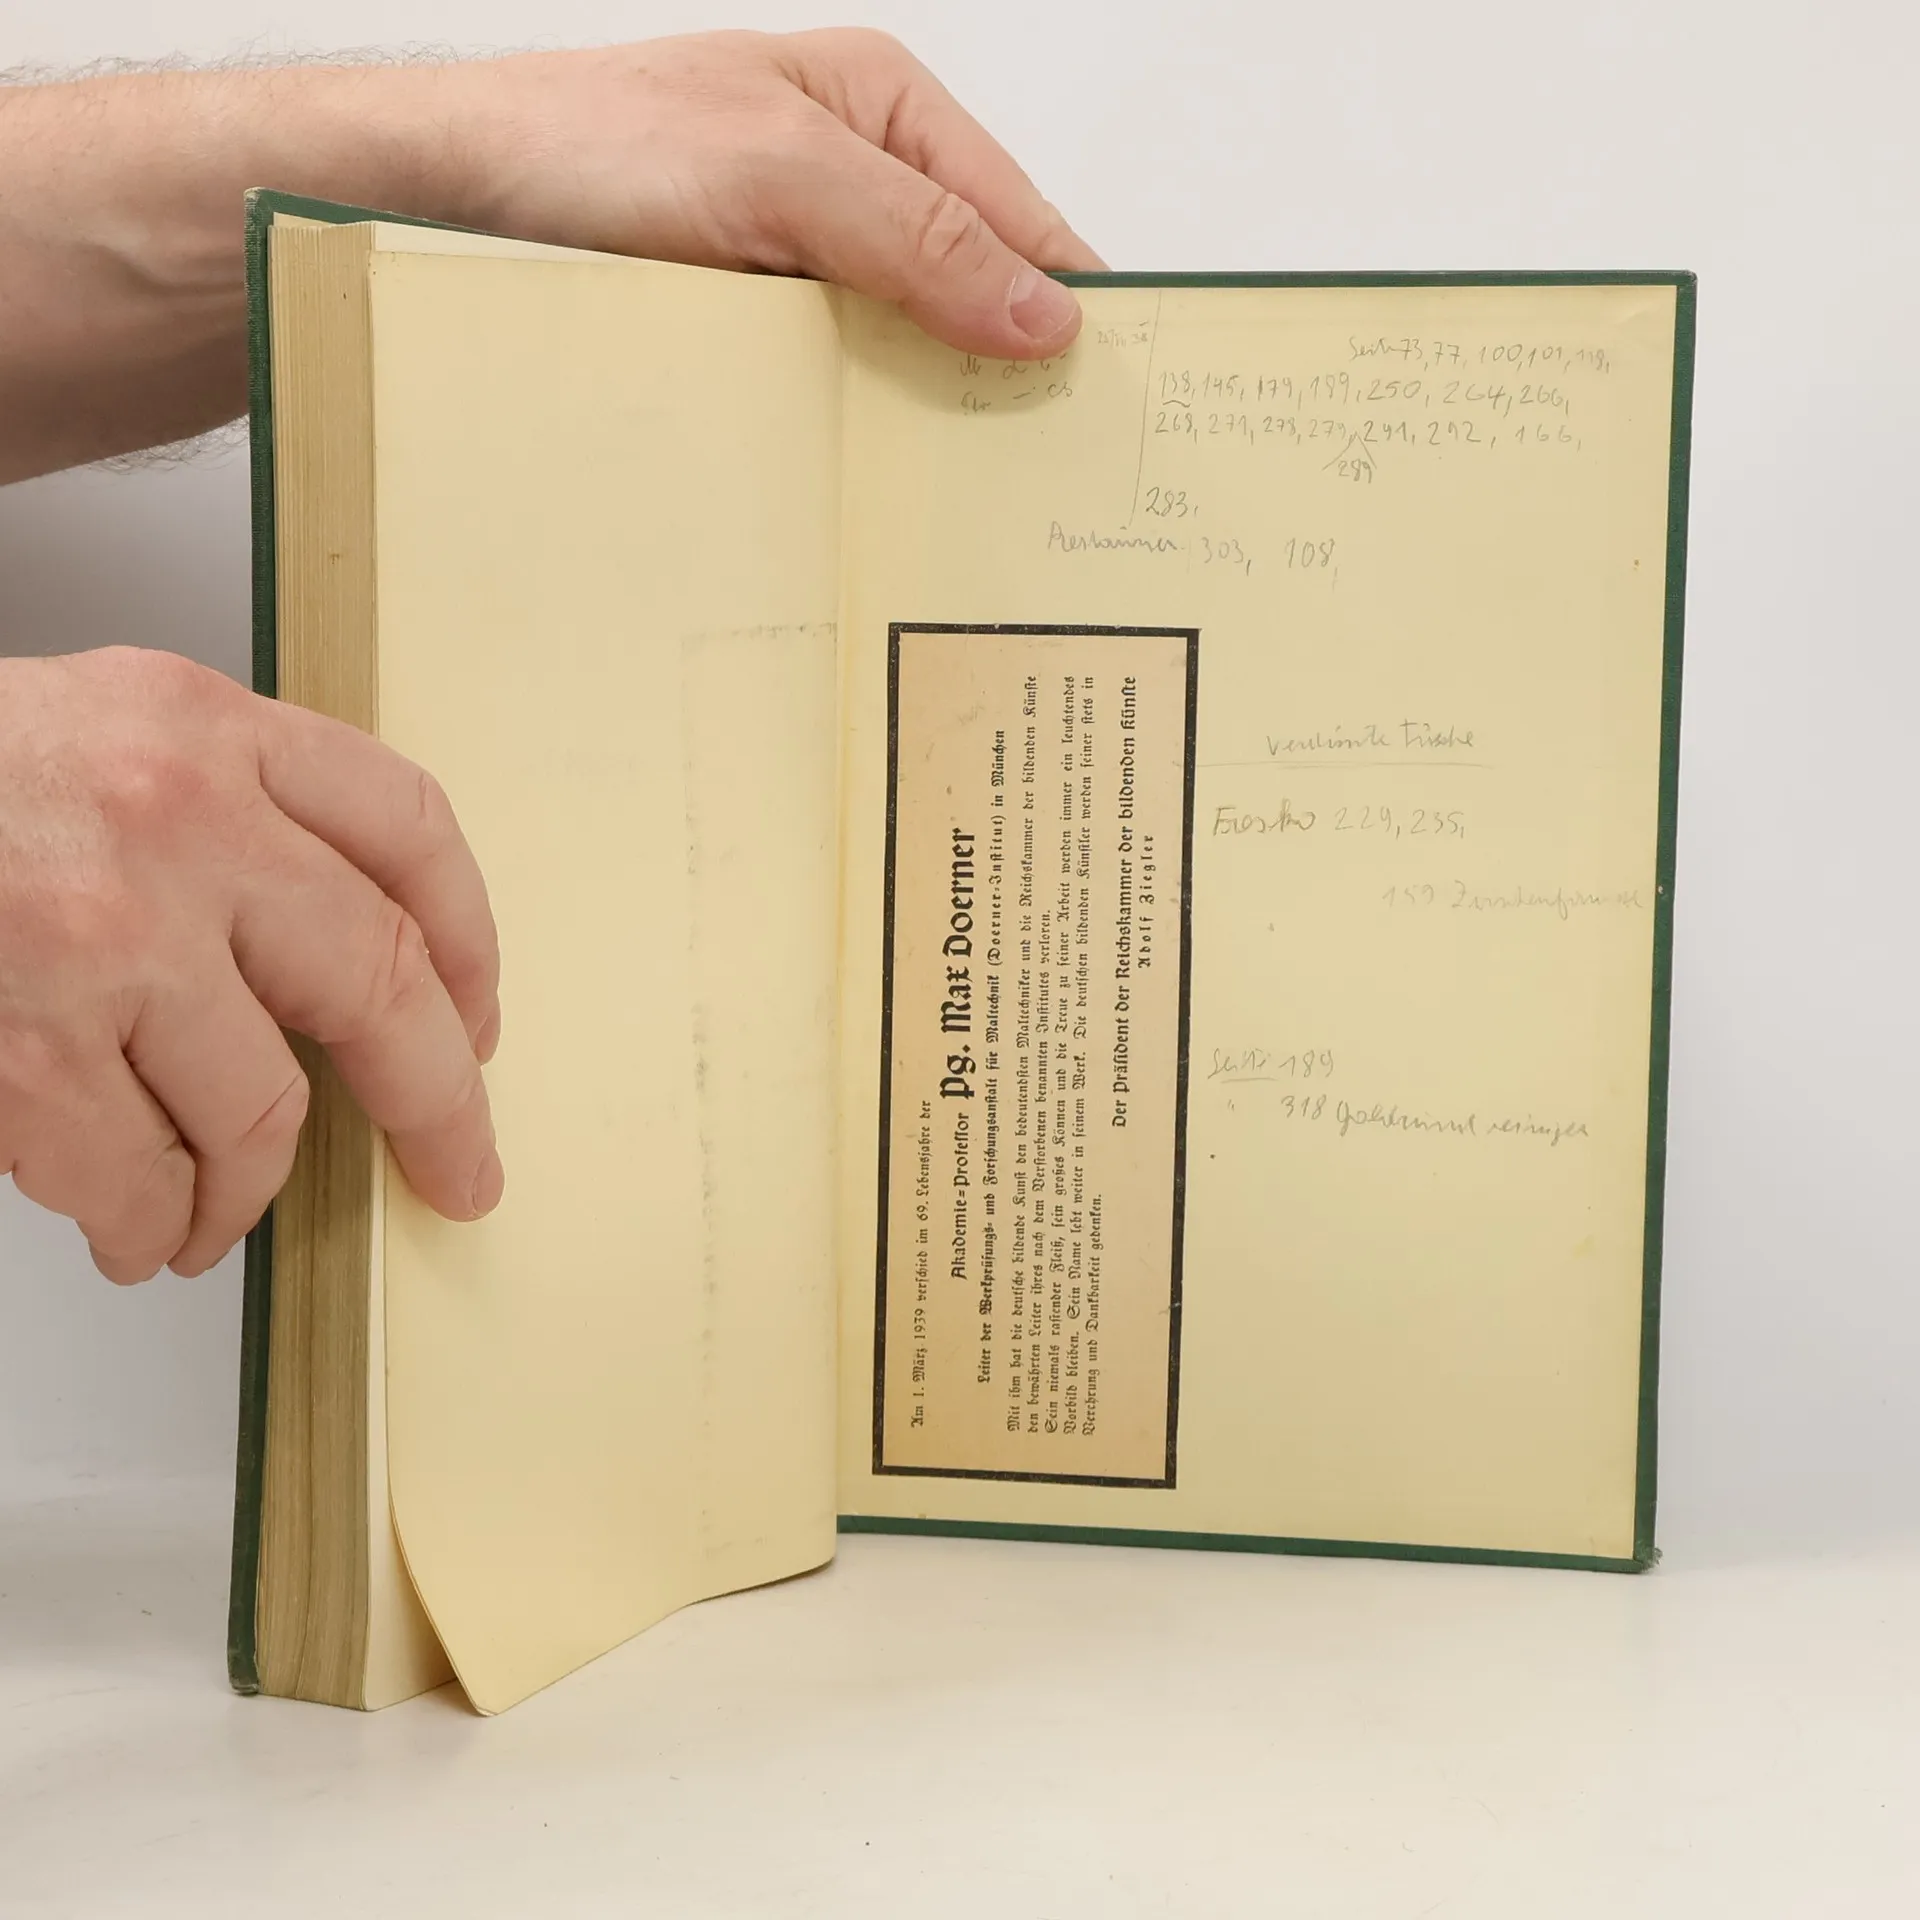 Seite 73, 77, 100, 101, 118,
138, 145, 179, 199, 250, 264, 266,
268, 271, 278, 279, 291, 292, 166,
289
283,
303, 108,
Am 1. März 1939 verschied im 69. Lebensjahre der
Akademie=Professor Pg. Max Doerner
Leiter der Werkprüfungs= und Forschungsanstalt für Maltechnik (Doerner=Institut) in München
Mit ihm hat die deutsche bildende Kunst den bedeutendsten Maltechniker und die Reichskammer der bildenden Künste
den bewährten Leiter ihres nach dem Verstorbenen benannten Institutes verloren.
Sein niemals rastender Fleiß, sein großes Können und die Treue zu seiner Arbeit werden immer ein leuchtendes
Vorbild bleiben. Sein Name lebt weiter in seinem Werk. Die deutschen bildenden Künstler werden seiner stets in
Verehrung und Dankbarkeit gedenken.
Der Präsident der Reichskammer der bildenden Künste
Adolf Ziegler
Tusche
Fresko 229, 235,
159 Zwischenfirnisse
Seite 189
" 318 Goldgrund reinigen